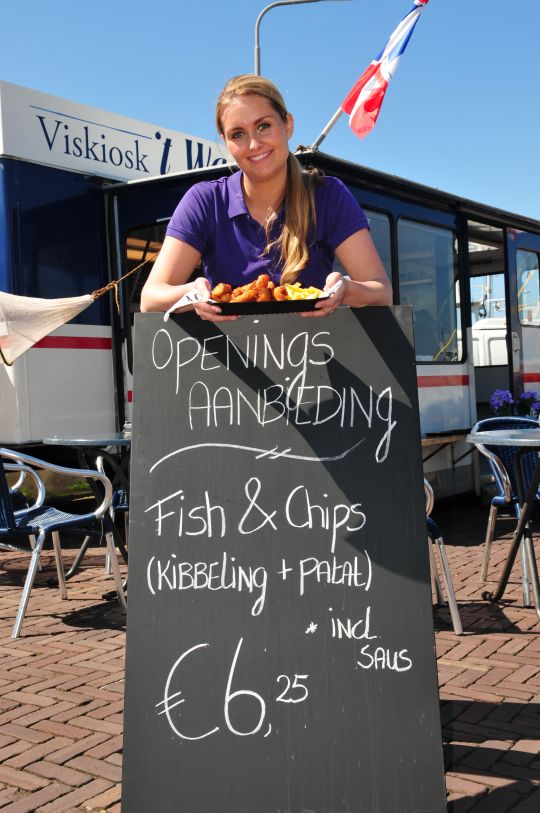 Viskiosk 't
OPENINGS
AANBIEDING
Fish & Chips
(KIBBELING + Patat)
* incl.
SAUS
€6,25